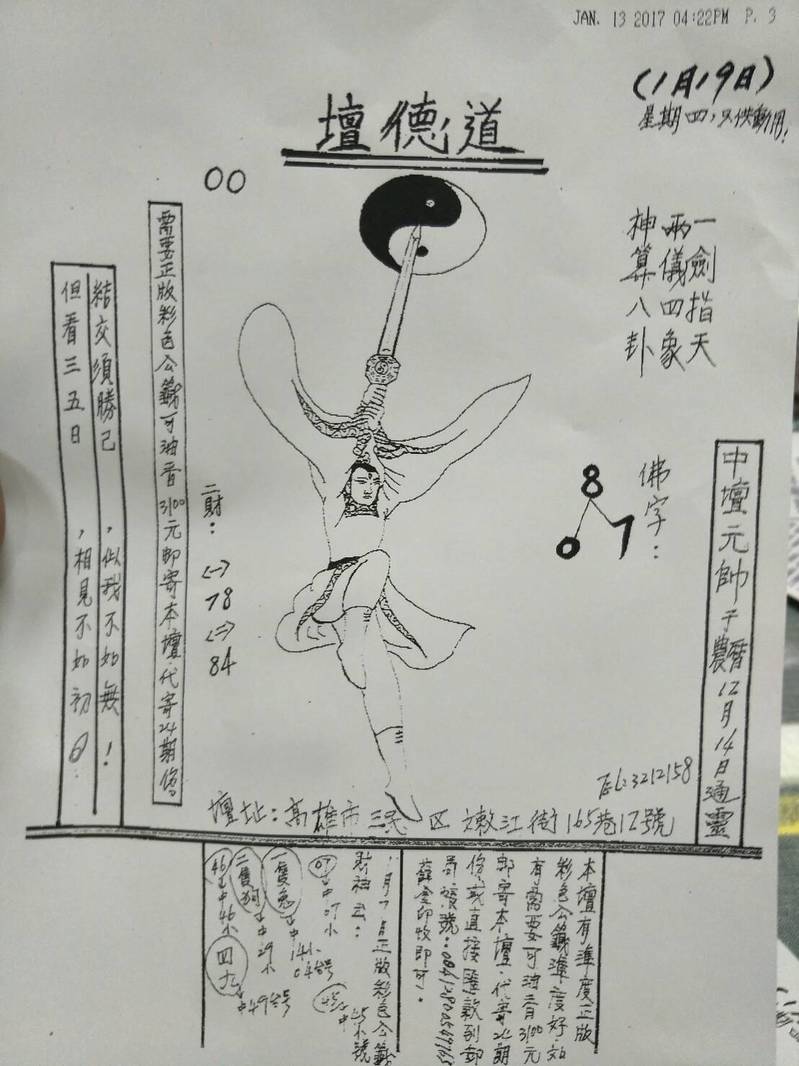 JAN. 13 2017 04:22PM P. 3
(1月19日)
星期四,只供動用!
道德壇
00
一劍指天
兩儀四象
神算八卦
中壇元帥于農曆12月14日通靈
佛字:
8
0 7
需要正版彩色公籤可油香3100元郵寄本壇代寄24期份
結交須勝己,似我不如無!
但看三五日,相見不如初。
二財:
78
84
TEL:3212158
壇址:高雄市三民区嫩江街165巷12號
本壇有準度正版
彩色公籤準度好,如
有需要可油香3100元
郵寄本壇,代寄24期
份,或直接匯款到郵
局
薛金印收即可。
1月7日正版彩色公籤
財神云:
07中07小
一隻兔中14小
04台号
45中45小號
二隻狗中29小
46中46小
四九中49台号